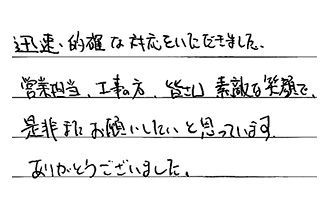 迅速、的確な対応をいただきました。
営業担当、工事の方、皆さん素敵な笑顔で、
是非またお願いしたいと思っています。
ありがとうございました。